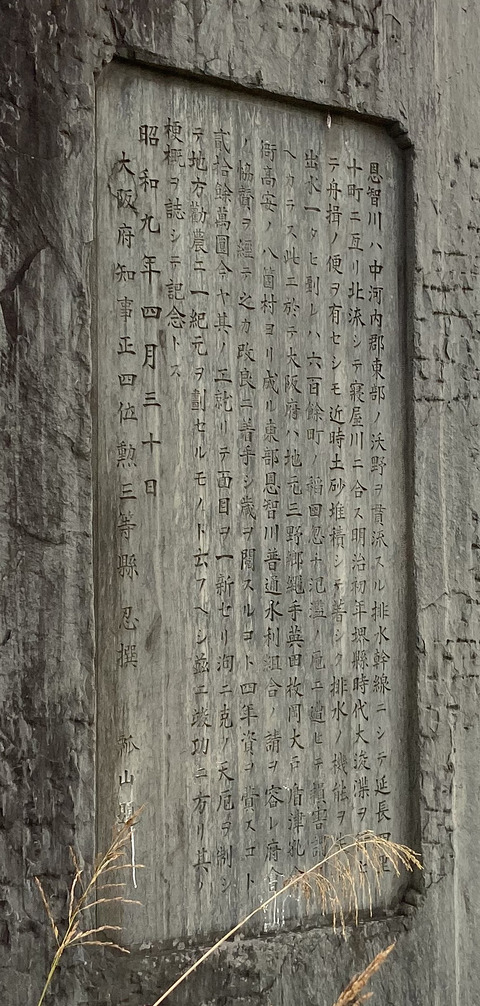 恩智川ハ中河内郡東部ノ沃野ヲ貫流スル排水幹線ニシテ延長四里
十町ニ亙リ北流シテ寢屋川ニ合ス明治初年堺縣時代大浚渫ヲ
テ舟揖ノ便ヲ有セシモ近時土砂堆積シテ著シク排水ノ機能ヲ
出水一タヒ到レハ六百餘町ノ稻田忽チ氾濫ノ厄ニ遭ヒテ損害
ヘカラス此ニ於テ大阪府ハ地元三野郷繩手英田枚岡大戸盾津孔
衙高安ノ八箇村ヨリ成ル東部恩智川普通水利組合ノ請ヲ容レ府會
ノ協贊ヲ經テ之カ改良ニ着手シ歳ヲ閲スルコト四年資ヲ費スコト
貳拾餘萬圓今ヤ其ノ工就リテ面目ヲ一新セリ洵ニ克ク天厄ヲ制シ
テ地方勸農ニ一紀元ヲ劃セルモノト云フヘシ茲ニ竣功ニ方リ其ノ
梗概ヲ誌シテ記念トス
昭和九年四月三十日
大阪府知事正四位勲三等縣 忍撰 山